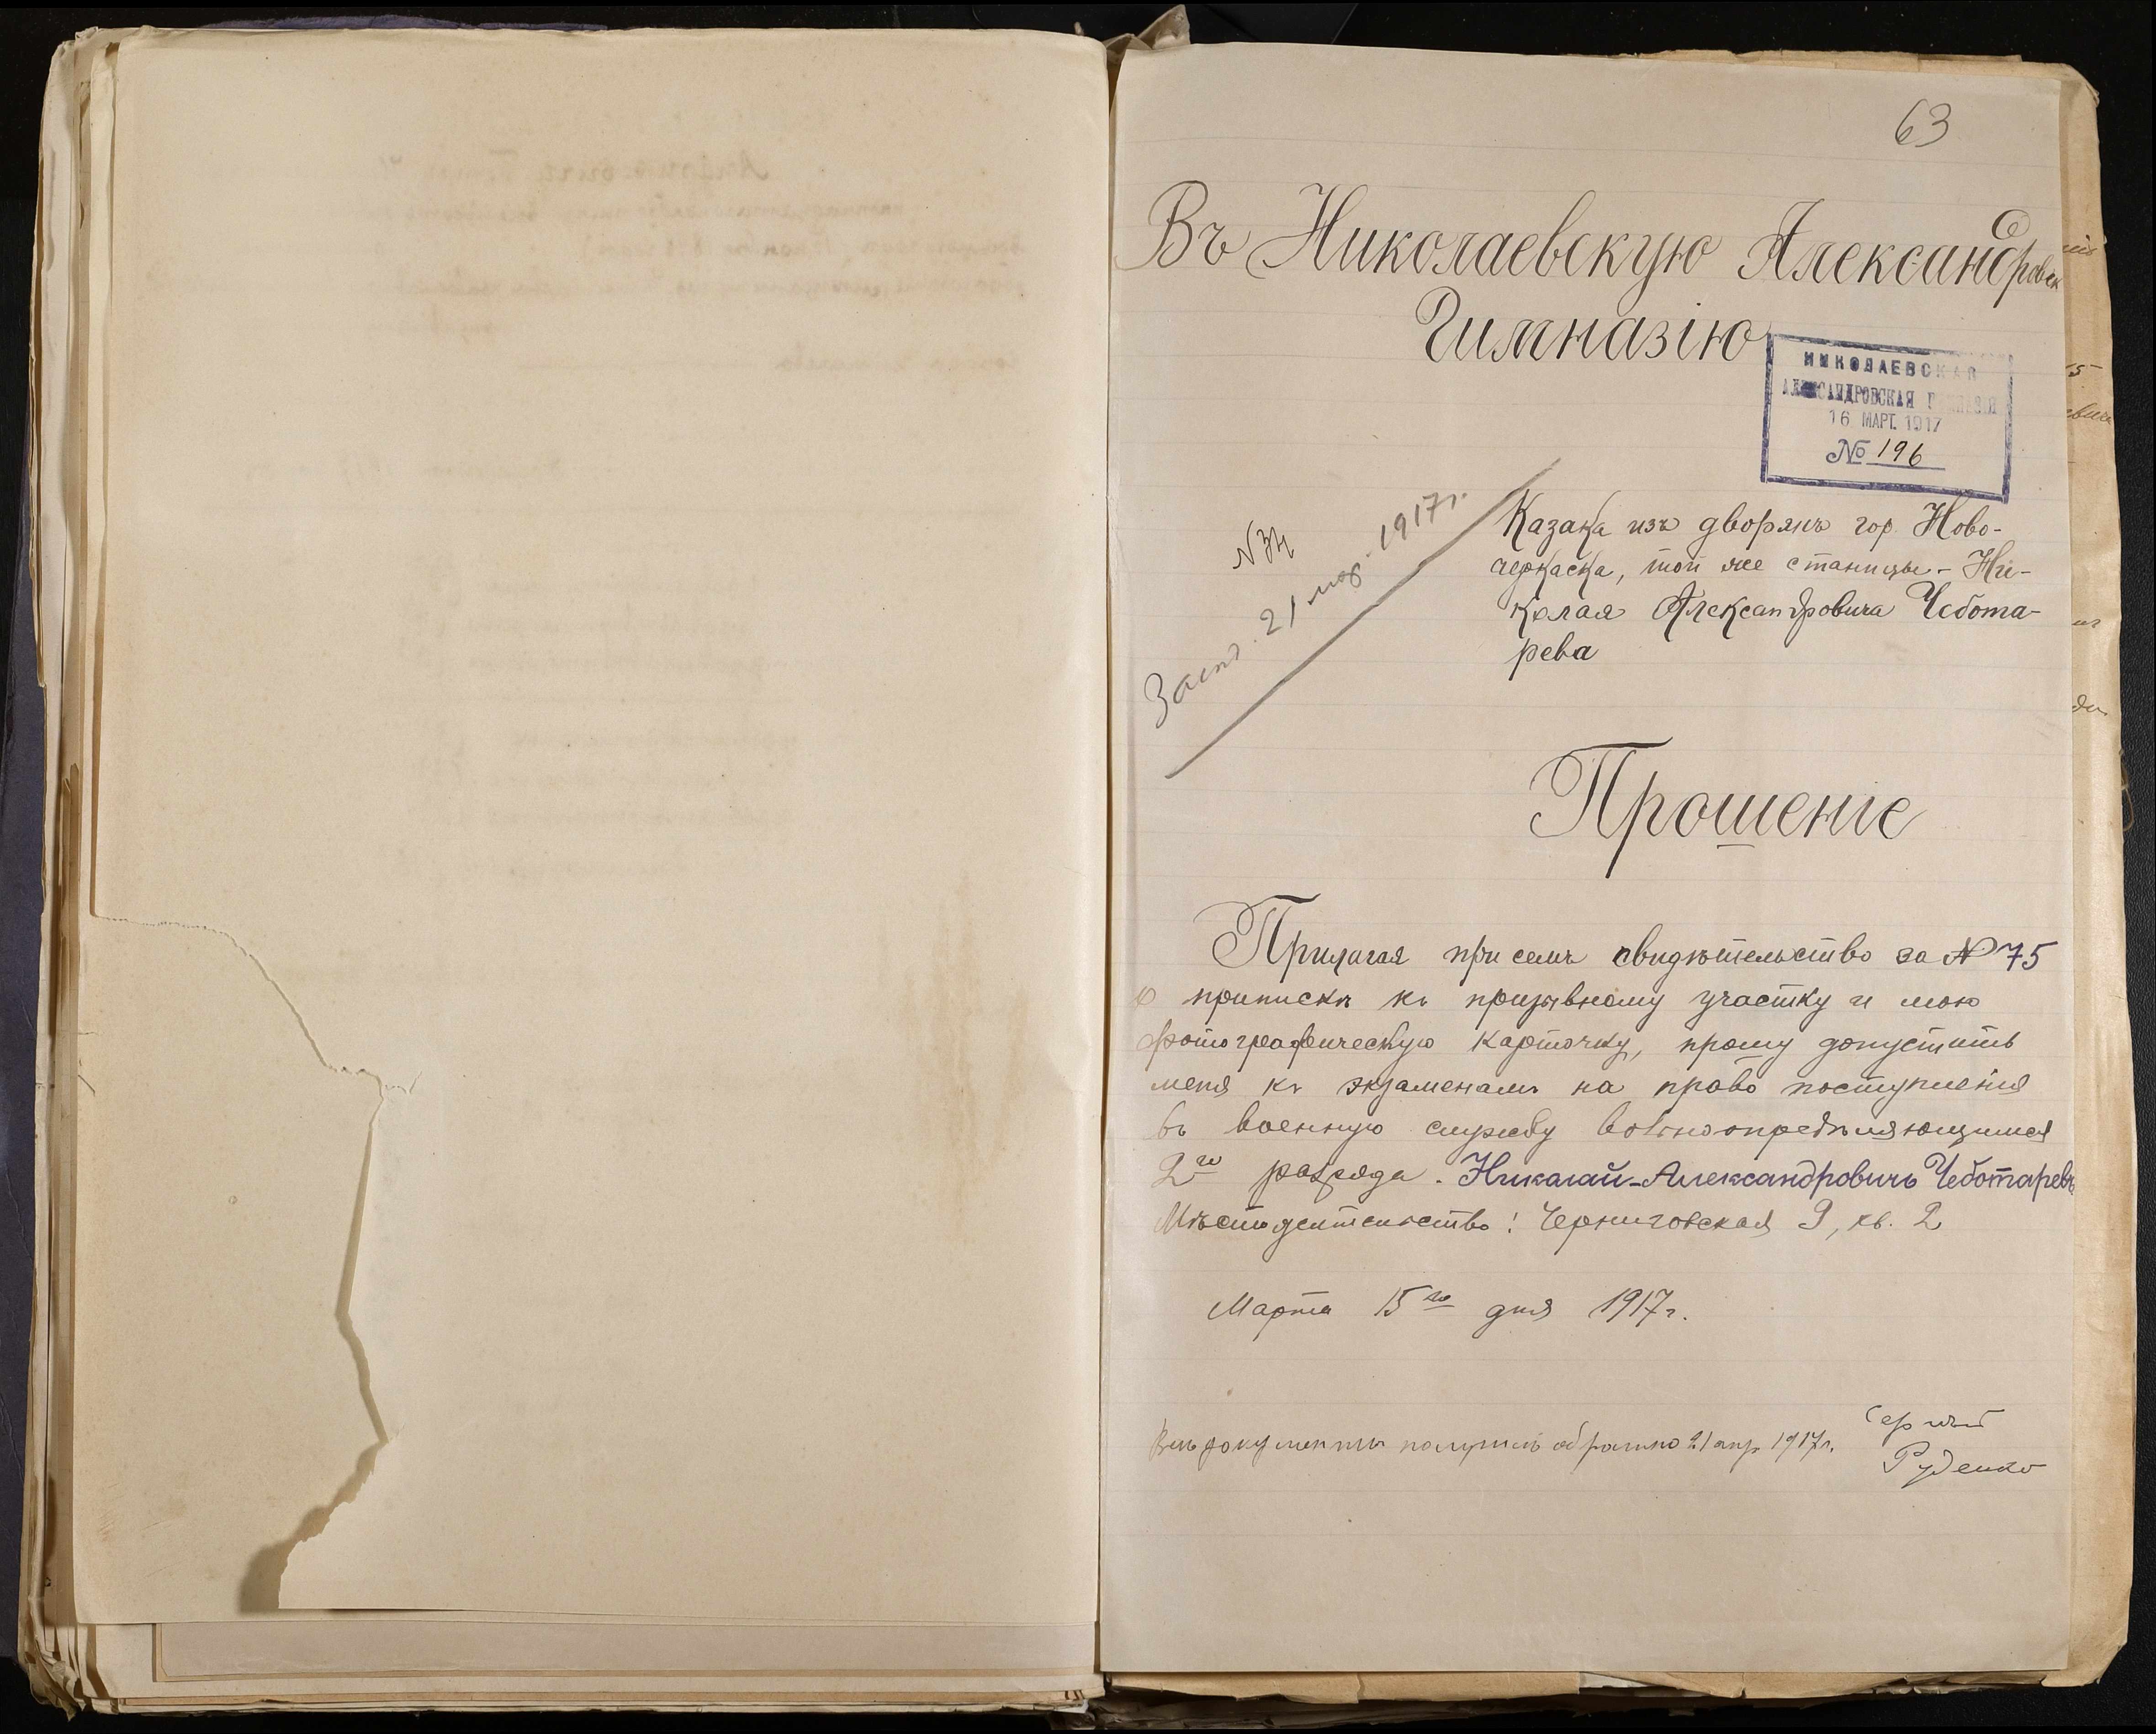 63
Въ Николаевскую Александровск
Гимназію
НИКОЛАЕВСКАЯ
АЛЕКСАНДРОВСКАЯ ГИМНАЗІЯ
16 МАРТ. 1917
№ 196
N 34
21 мар. 1917 г.
Казака изъ дворянъ гор. Ново-
черкаска, той же станицы - Ни-
колая Александровича Чебота-
рева
Прошеніе
Прилагая при семъ свидѣтельство за № 75
о припискѣ къ призывному участку и мою
фотографическую карточку, прошу допустить
меня къ экзаменамъ на право поступленія
въ военную службу вольноопредѣляющимся
2го разряда. Николай-Александровичъ Чеботаревъ
Мѣстожительство: Черниговская 9, кв. 2
Марта 15го дня 1917 г.
Всѣ документы получилъ обратно 21 апр 1917 г.
Сергѣй
Руденко